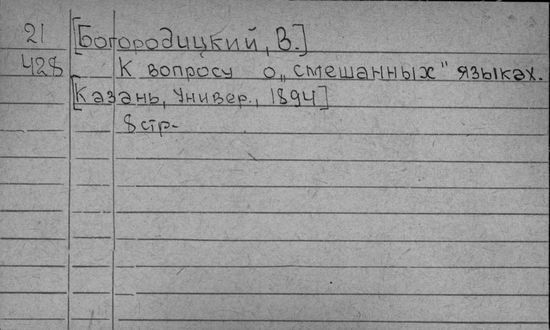 21 [Богородицкий, В.]
428 К вопросу о „смешанных" языках.
[Казань, Универ., 1894]
8 стр-